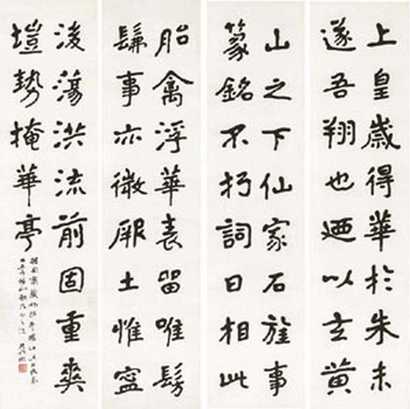 上皇歲得華於朱未
遂吾翔也迺以玄黃
山之下仙家石旌事
篆銘不朽詞曰相此
胎禽浮華表留唯髣
髴事亦微厥土惟寧
後蕩洪流前固重爽
塏勢掩華亭